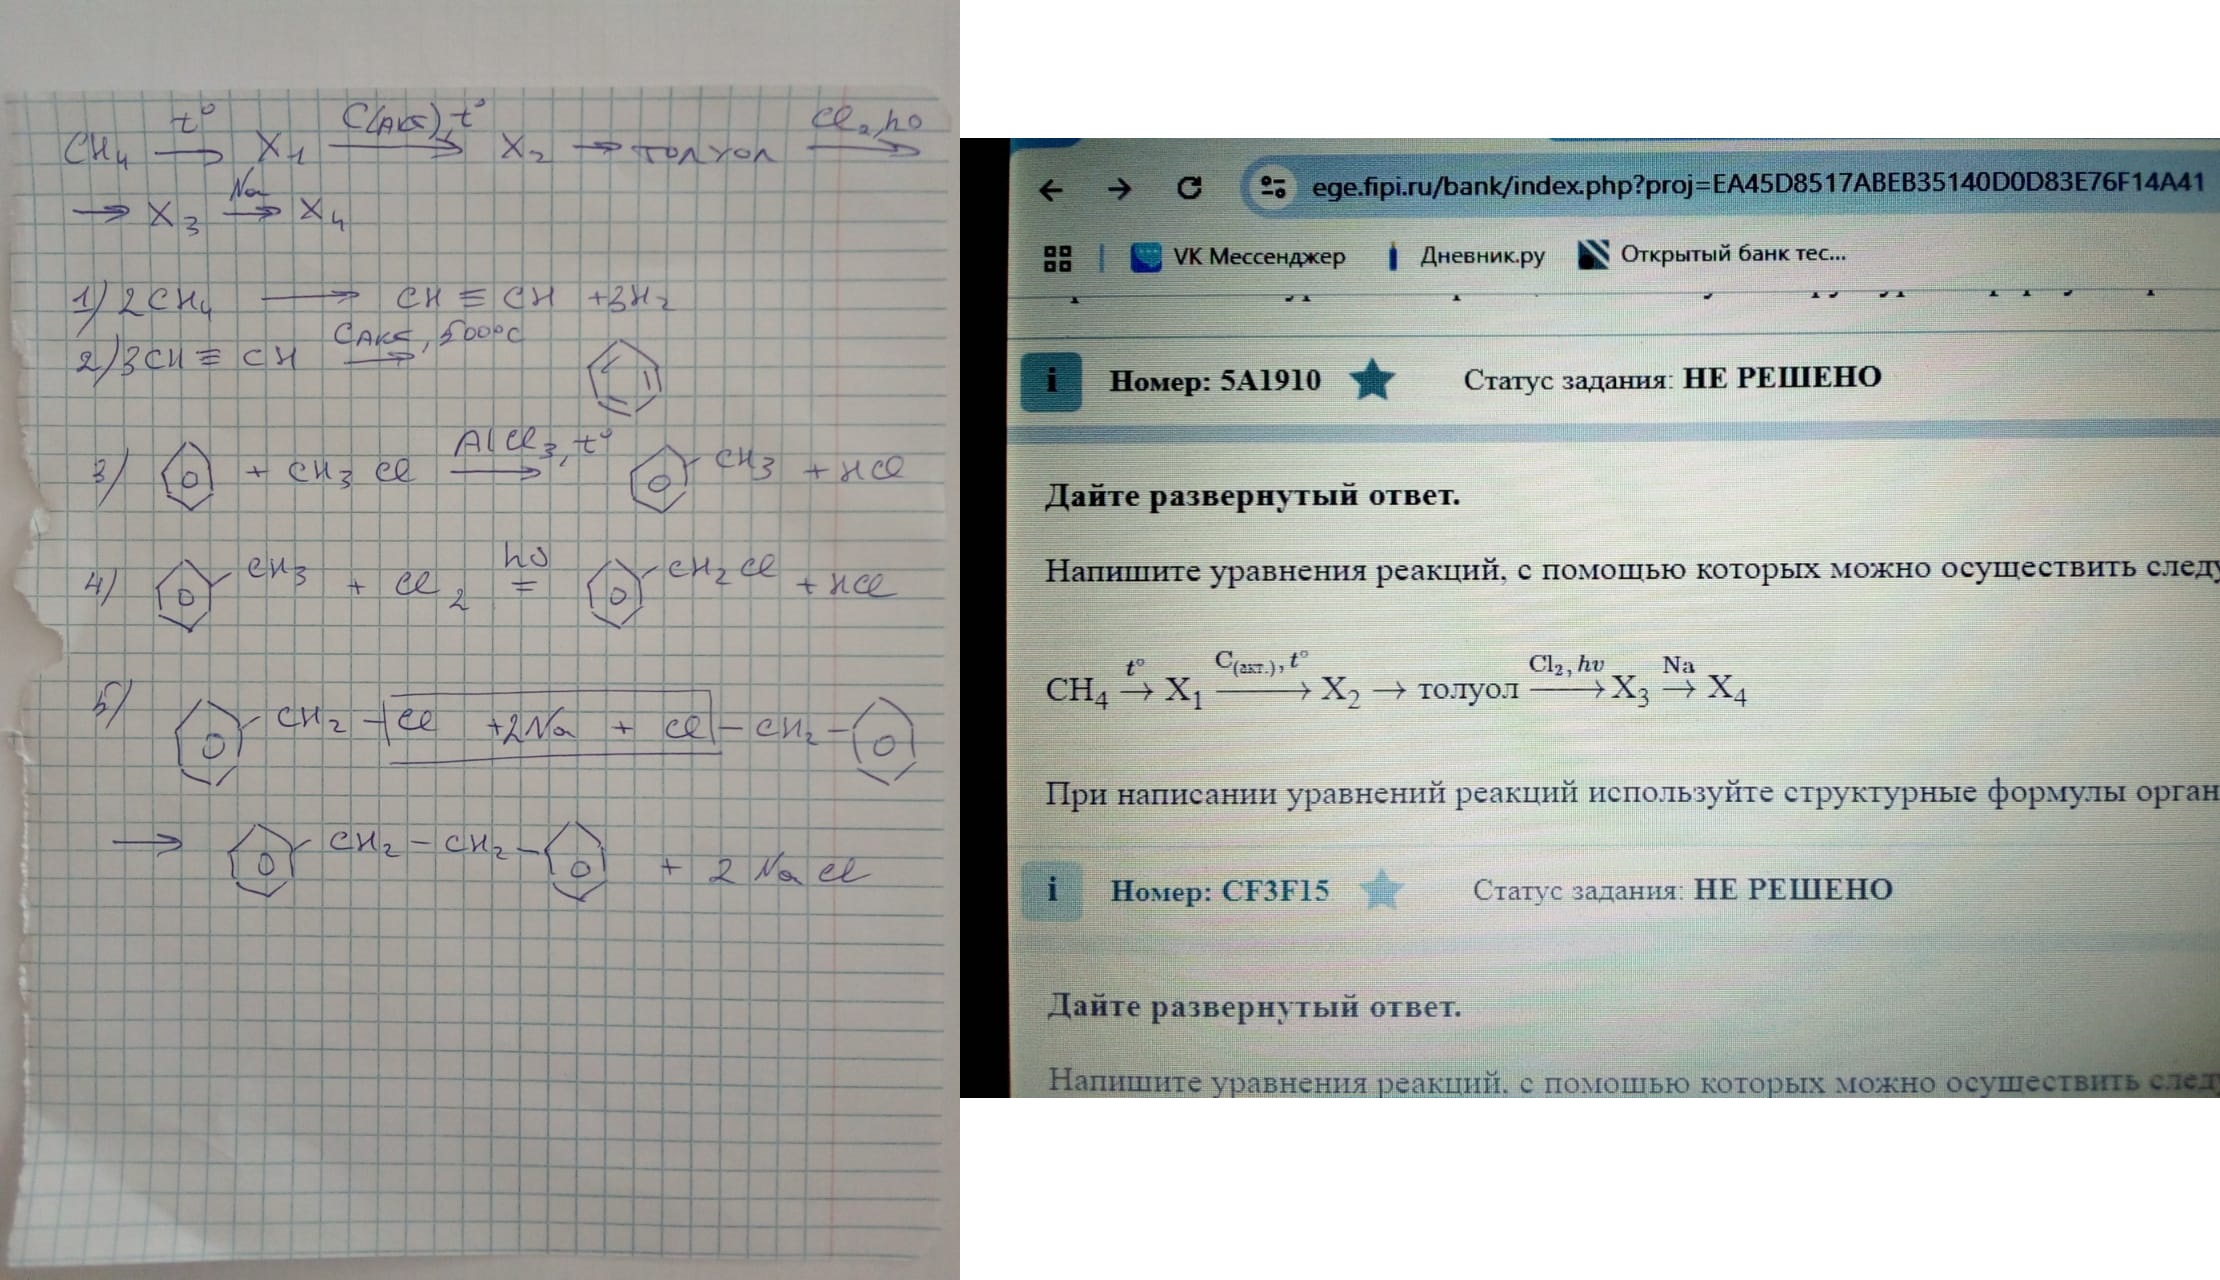 CH₄ →(t°) X₁ →(C(акт), t°) X₂ → толуол →(Cl₂, hυ)
→ X₃ →(Na) X₄
1) 2CH₄ → CH ≡ CH + 3H₂
2) 3CH ≡ CH →(Cакт, 500°C)
3) + CH₃Cl →(AlCl₃, t°) CH₃ + HCl
4) CH₃ + Cl₂ =(hυ) CH₂Cl + HCl
5) CH₂ – Cl + 2Na + Cl – CH₂ –
→ CH₂ – CH₂ – + 2NaCl
ege.fipi.ru/bank/index.php?proj=EA45D8517ABEB35140D0D83E76F14A41
VK Мессенджер Дневник.ру Открытый банк тес...
i Номер: 5A1910 Статус задания: НЕ РЕШЕНО
Дайте развернутый ответ.
Напишите уравнения реакций, с помощью которых можно осуществить след
CH₄ →(t°) X₁ →(C(акт.), t°) X₂ → толуол →(Cl₂, hν) X₃ →(Na) X₄
При написании уравнений реакций используйте структурные формулы орган
i Номер: CF3F15 Статус задания: НЕ РЕШЕНО
Дайте развернутый ответ.
Напишите уравнения реакций, с помощью которых можно осуществить след